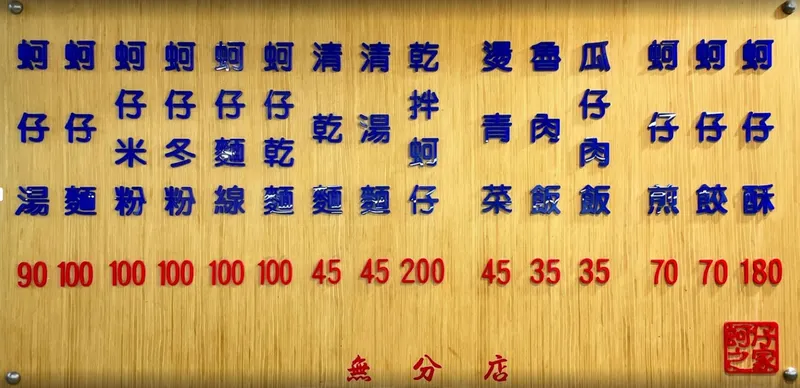 蚵仔湯 90
蚵仔麵 100
蚵仔米粉 100
蚵仔冬粉 100
蚵仔麵線 100
蚵仔乾麵 100
清乾麵 45
清湯麵 45
乾拌蚵仔 200
燙青菜 45
魯肉飯 35
瓜仔肉飯 35
蚵仔煎 70
蚵仔餃 70
蚵仔酥 180
無分店
蚵仔之家